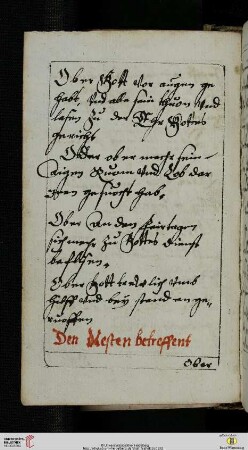 Ob er Gott vor augen ge
habt, und alle sein thuon und
lasen zu der Ehr Gottes
gericht
Oder ob er mehr sein
aigen Ruom und Lob dar
gesuocht hab.
Ob er an den Feirtagen
sich mehr zu Gottes dienst
beflissen.
Ob er Gott trewlich umb
hilff und bey stand an ge,
ruoffen
Den Nesten betreffent
Ob er